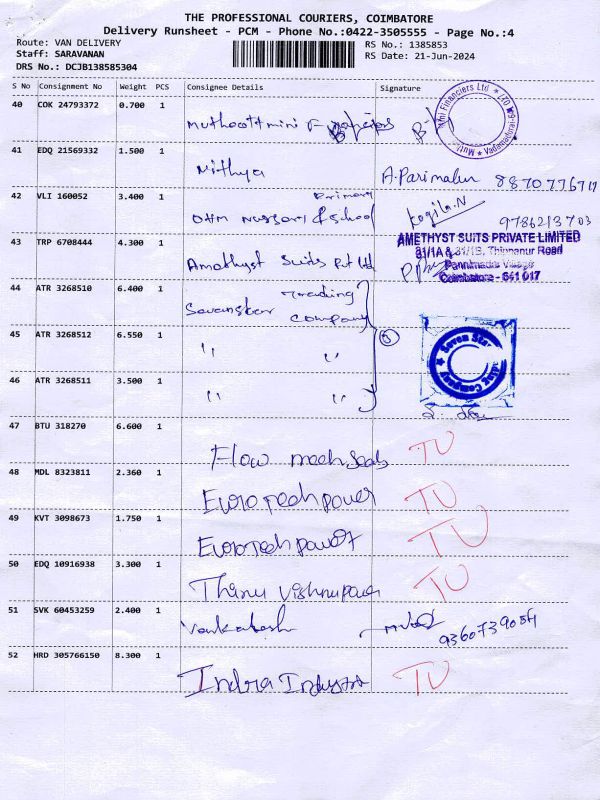 THE PROFESSIONAL COURIERS, COIMBATORE
Delivery Runsheet - PCM - Phone No.:0422-3505555 - Page No.:4
Route: VAN DELIVERY
Staff: SARAVANAN
DRS No.: DCJB138585304
RS No.: 1385853
RS Date: 21-Jun-2024
S No Consignment No Weight PCS Consignee Details Signature
40 COK 24793372 0.700 1 Muthoottmini
41 EDQ 21569332 1.500 1 Nithya A.Parimalan
42 VLI 160052 3.400 1 Primary
Nursary & School Kogila.N
9786213703
43 TRP 6708444 4.300 1 Amethyst Suits Pvt Ltd
AMETHYST SUITS PRIVATE LIMITED
81/1A & 81/1B, Thippanur Road
Pannimadai Village
Coimbatore - 641 017
44 ATR 3268510 6.400 1 Sevenstar Trading
Company
3
45 ATR 3268512 6.550 1 " "
46 ATR 3268511 3.500 1 " "
47 BTU 318270 6.600 1 Flow mech seals TU
48 MDL 8323811 2.360 1 Euro Tech power TU
49 KVT 3098673 1.750 1 Euro Tech power TU
50 EDQ 10916938 3.300 1 Thiru Vishnu TU
51 SVK 60453259 2.400 1 Venkatesh
52 HRD 305766150 8.300 1 Indra Industri TU